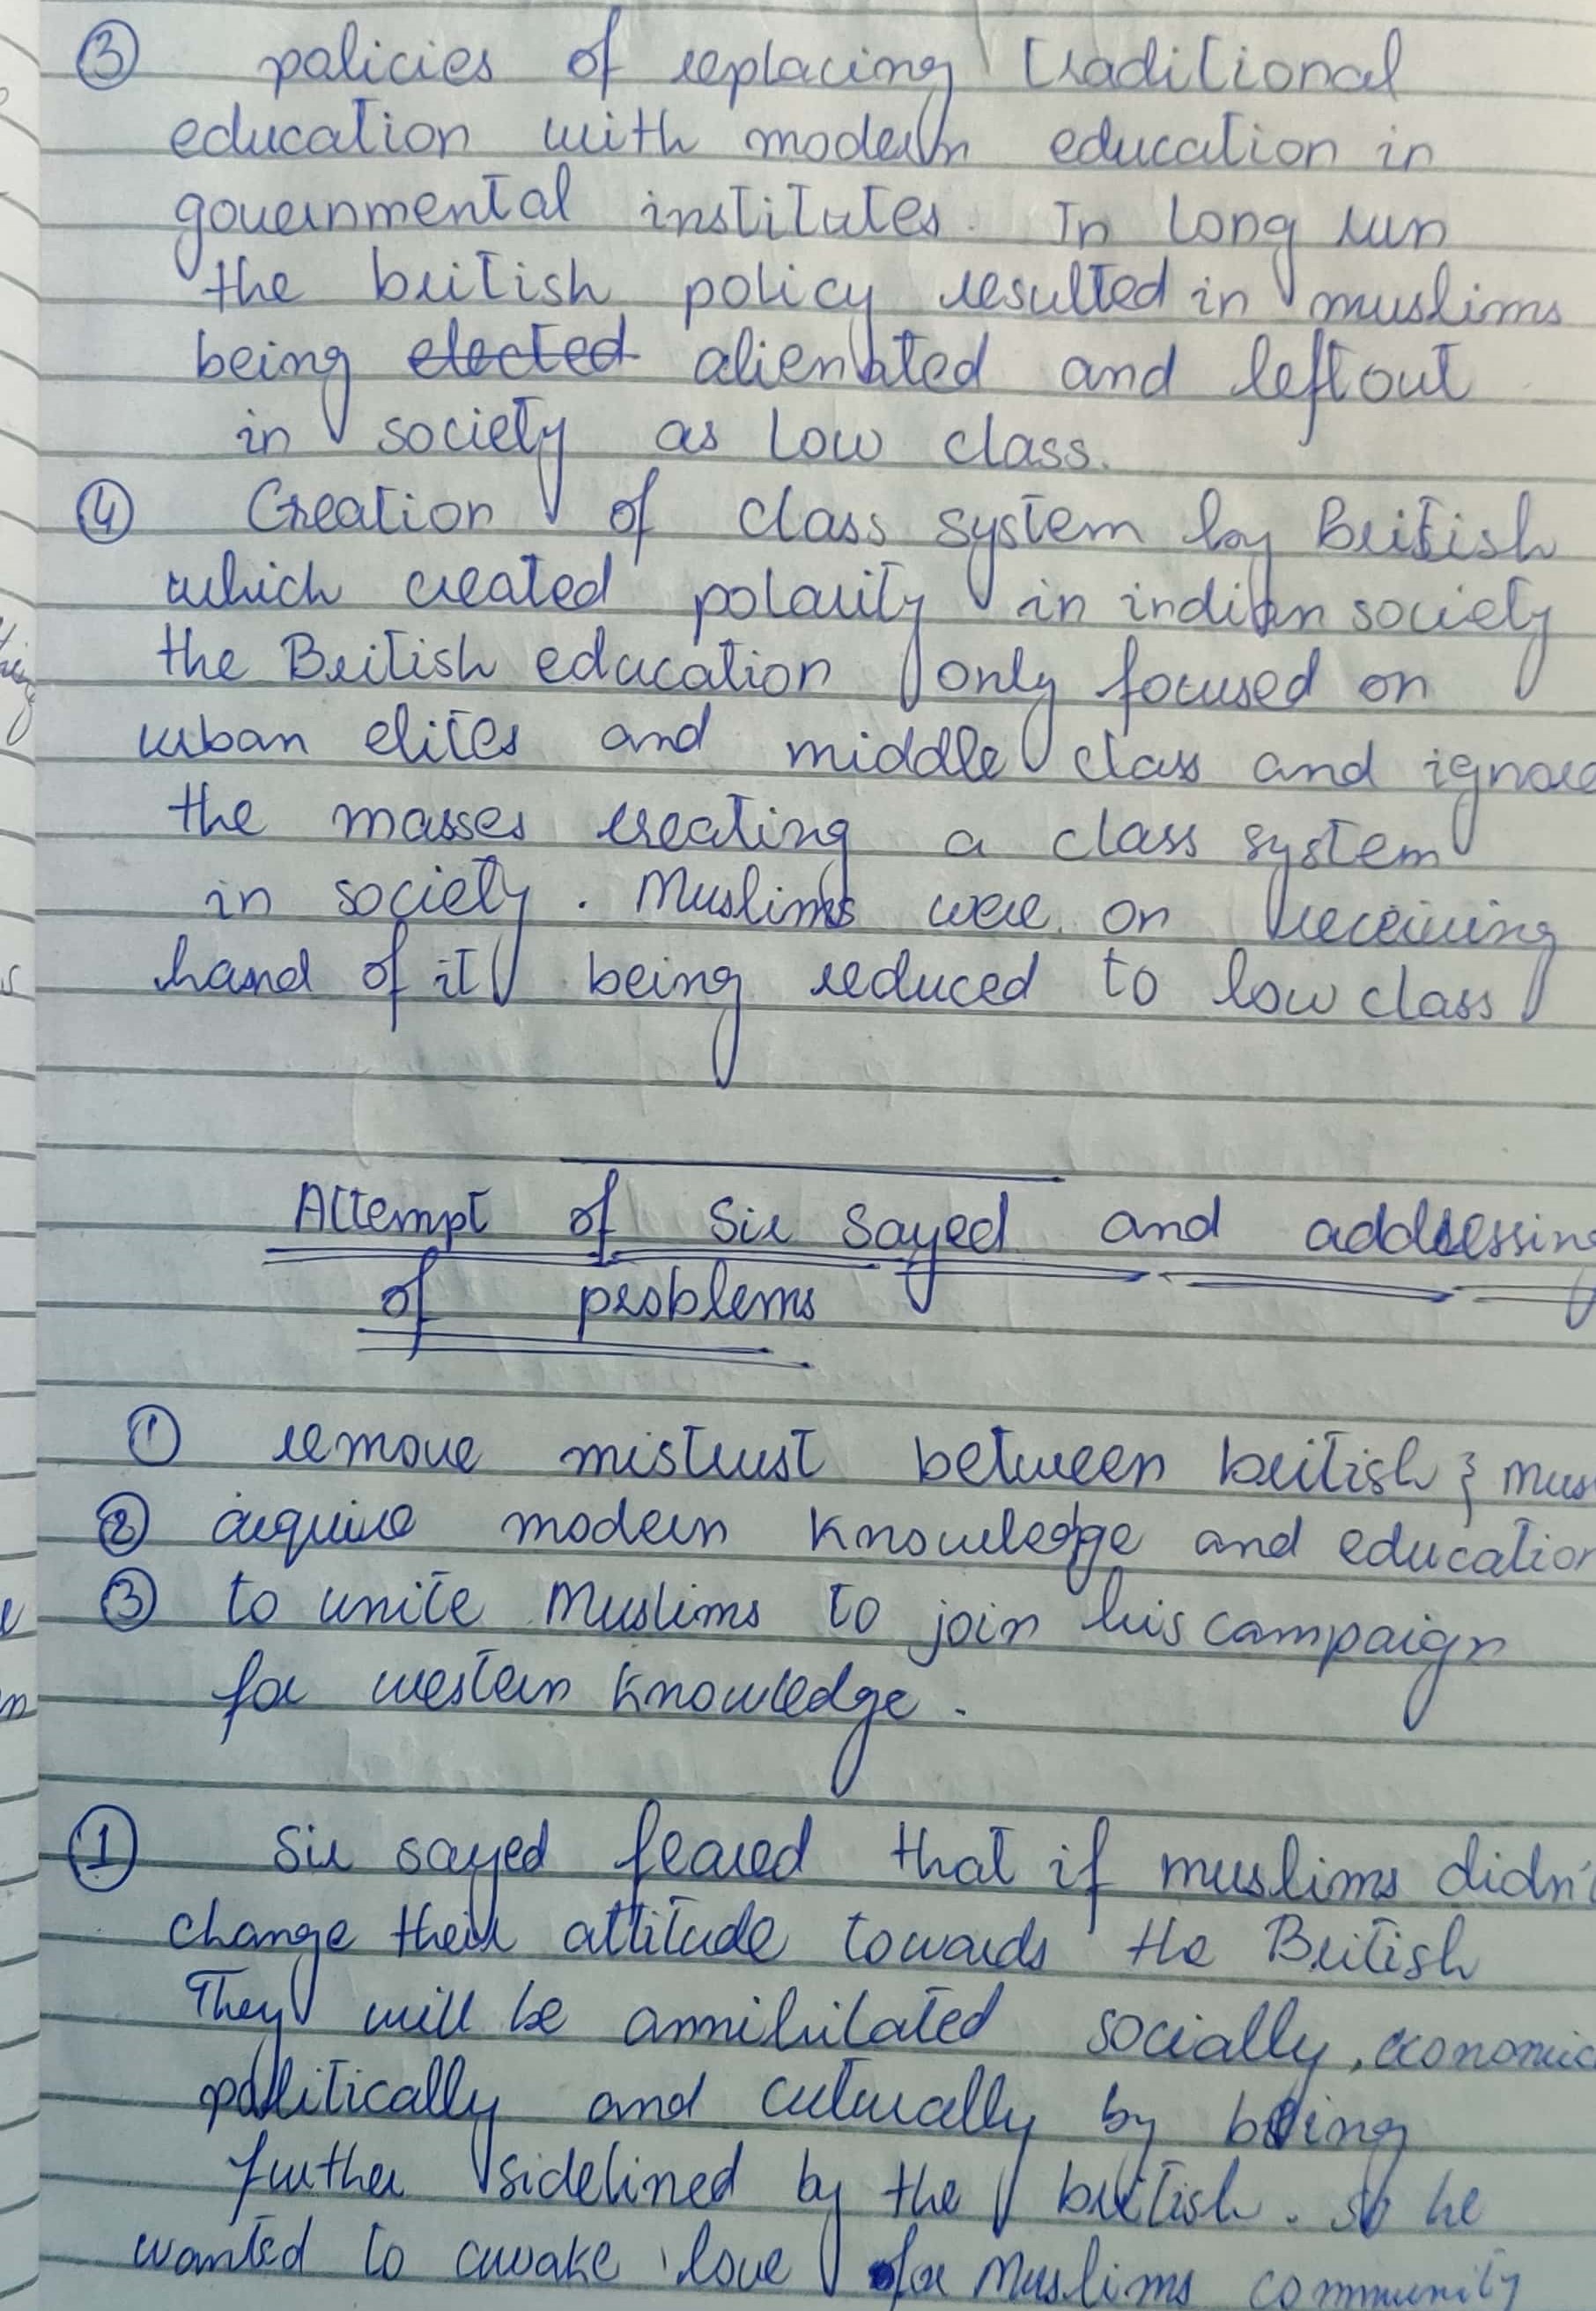 ③ policies of replacing traditional
education with modern education in
governmental institutes. In long run
the british policy resulted in muslims
being elected alienated and left out
in society as low class.
④ Creation of class system by British
which created polarity in indian society
the British education only focused on
urban elites and middle class and ignore
the masses creating a class system
in society. Muslims were on receiving
hand of it being reduced to low class
Attempt of Sir Sayed and addressing
of problems
① remove mistrust between british & mus
② acquire modern knowledge and education
③ to unite Muslims to join his campaign
for western knowledge.
① Sir sayed feared that if muslims didn't
change their attitude towards the British
They will be annihilated socially, economic
politically and culturally by being
further sidelined by the british. so he
wanted to awake love for Muslims community